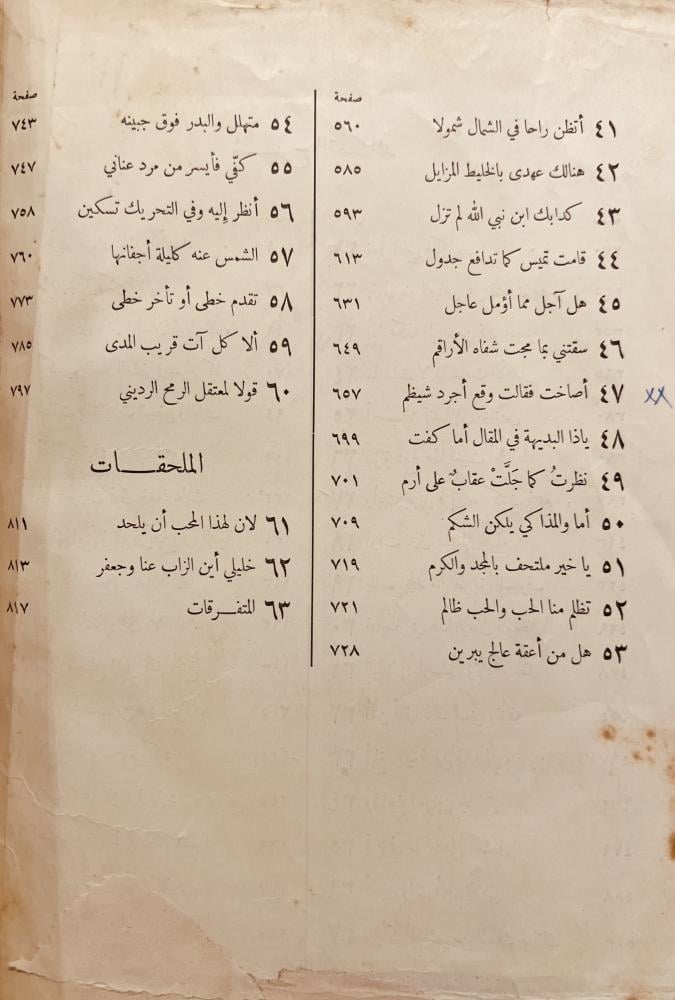 صفحة
٤١ أتظن راحا في الشمال شمولا ٥٦٠
٤٢ هنالك عهدى بالخليط المزايل ٥٨٥
٤٣ كدابك ابن نبي الله لم تزل ٥٩٣
٤٤ قامت تميس كما تدافع جدول ٦١٣
٤٥ هل آجل مما أؤمل عاجل ٦٣١
٤٦ سقتني بما مجت شفاه الأراقم ٦٤٩
٤٧ أصاخت فقالت وقع أجرد شيظم ٦٥٧
٤٨ ياذا البديهة في المقال أما كفت ٦٩٩
٤٩ نظرتُ كما جَلَّتْ عقابٌ على أرم ٧٠١
٥٠ أما والمذاكي يلكن الشكم ٧٠٩
٥١ يا خير ملتحف بالمجد والكرم ٧١٩
٥٢ تظلم منا الحب والحب ظالم ٧٢١
٥٣ هل من أعقة عالج يبرين ٧٢٨
صفحة
٥٤ متهلل والبدر فوق جبينه ٧٤٣
٥٥ كفّي فأيسر من مرد عناني ٧٤٧
٥٦ أنظر إليه وفي التحريك تسكين ٧٥٨
٥٧ الشمس عنه كليلة أجفانها ٧٦٠
٥٨ تقدم خطى أو تأخر خطى ٧٧٣
٥٩ ألا كل آت قريب المدى ٧٨٥
٦٠ قولا لمعتقل الرمح الرديني ٧٩٧
الملحقات
٦١ لان لهذا المحب أن يلحد ٨١١
٦٢ خليلي أين الزاب عنا وجعفر ٨١٣
٦٣ المتفرقات ٨١٧
xx